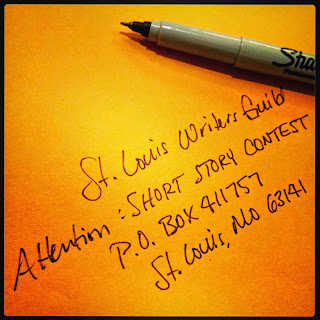 Sha
St. Louis Writers Guild
Attention: SHORT STORY CONTEST
P.O. BOX 411757
St. Louis, MO 63141